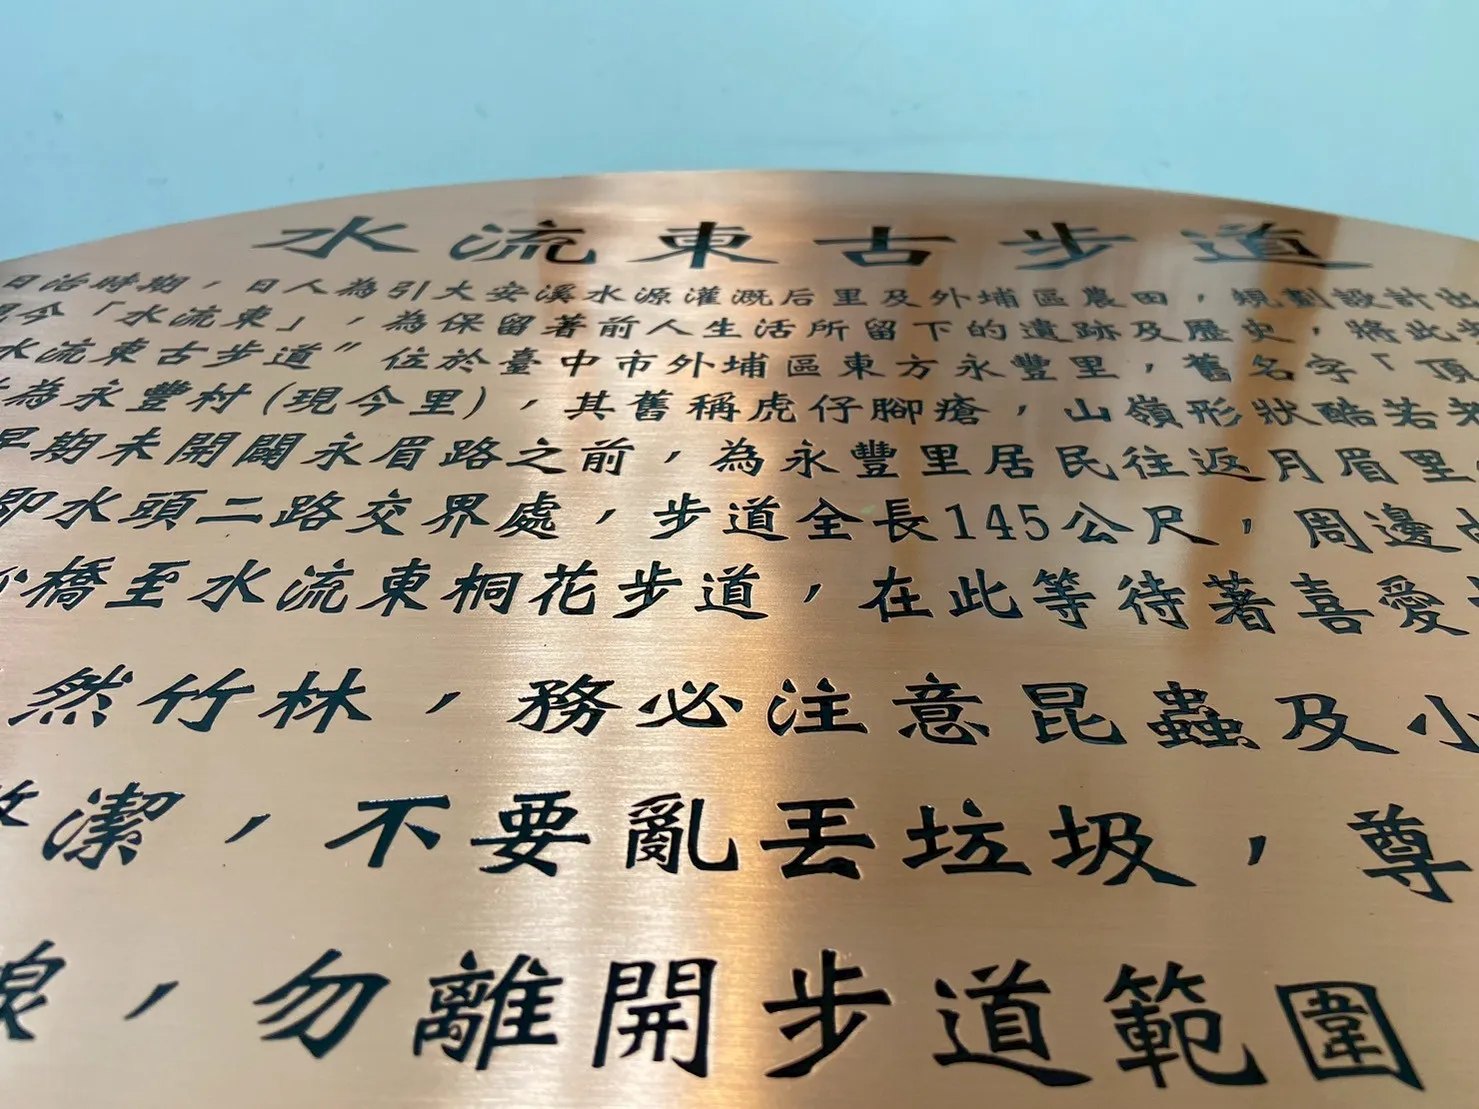 水流東古步道
日治時期，日人為引大安溪水源灌溉后里及外埔區農田，規劃設計出
今「水流東」，為保留著前人生活所留下的遺跡及歷史，將此步
水流東古步道"位於臺中市外埔區東方永豐里，舊名字「頂
為永豐村(現今里)，其舊稱虎仔腳瘡，山嶺形狀酷若老
早期未開闢永眉路之前，為永豐里居民往返月眉里
即水頭二路交界處，步道全長145公尺，周邊
橋至水流東桐花步道，在此等待著喜愛
然竹林，務必注意昆蟲及小
潔，不要亂丟垃圾，尊
，勿離開步道範圍